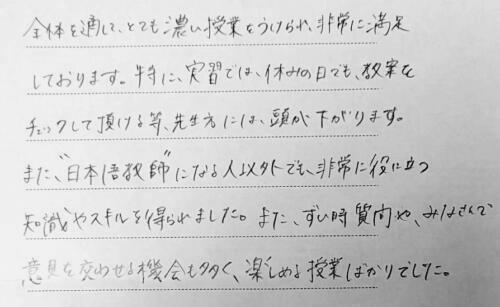 全体を通して、とても濃い授業をうけられ、非常に満足
しております。特に、実習では、休みの日でも、教案を
チェックして頂ける等、先生方には、頭が下がります。
また、"日本語教師"になる人以外でも、非常に役に立つ
知識やスキルを得られました。また、ずい時質問や、みなさんで
意見を交わせる機会も多く、楽しめる授業ばかりでした。